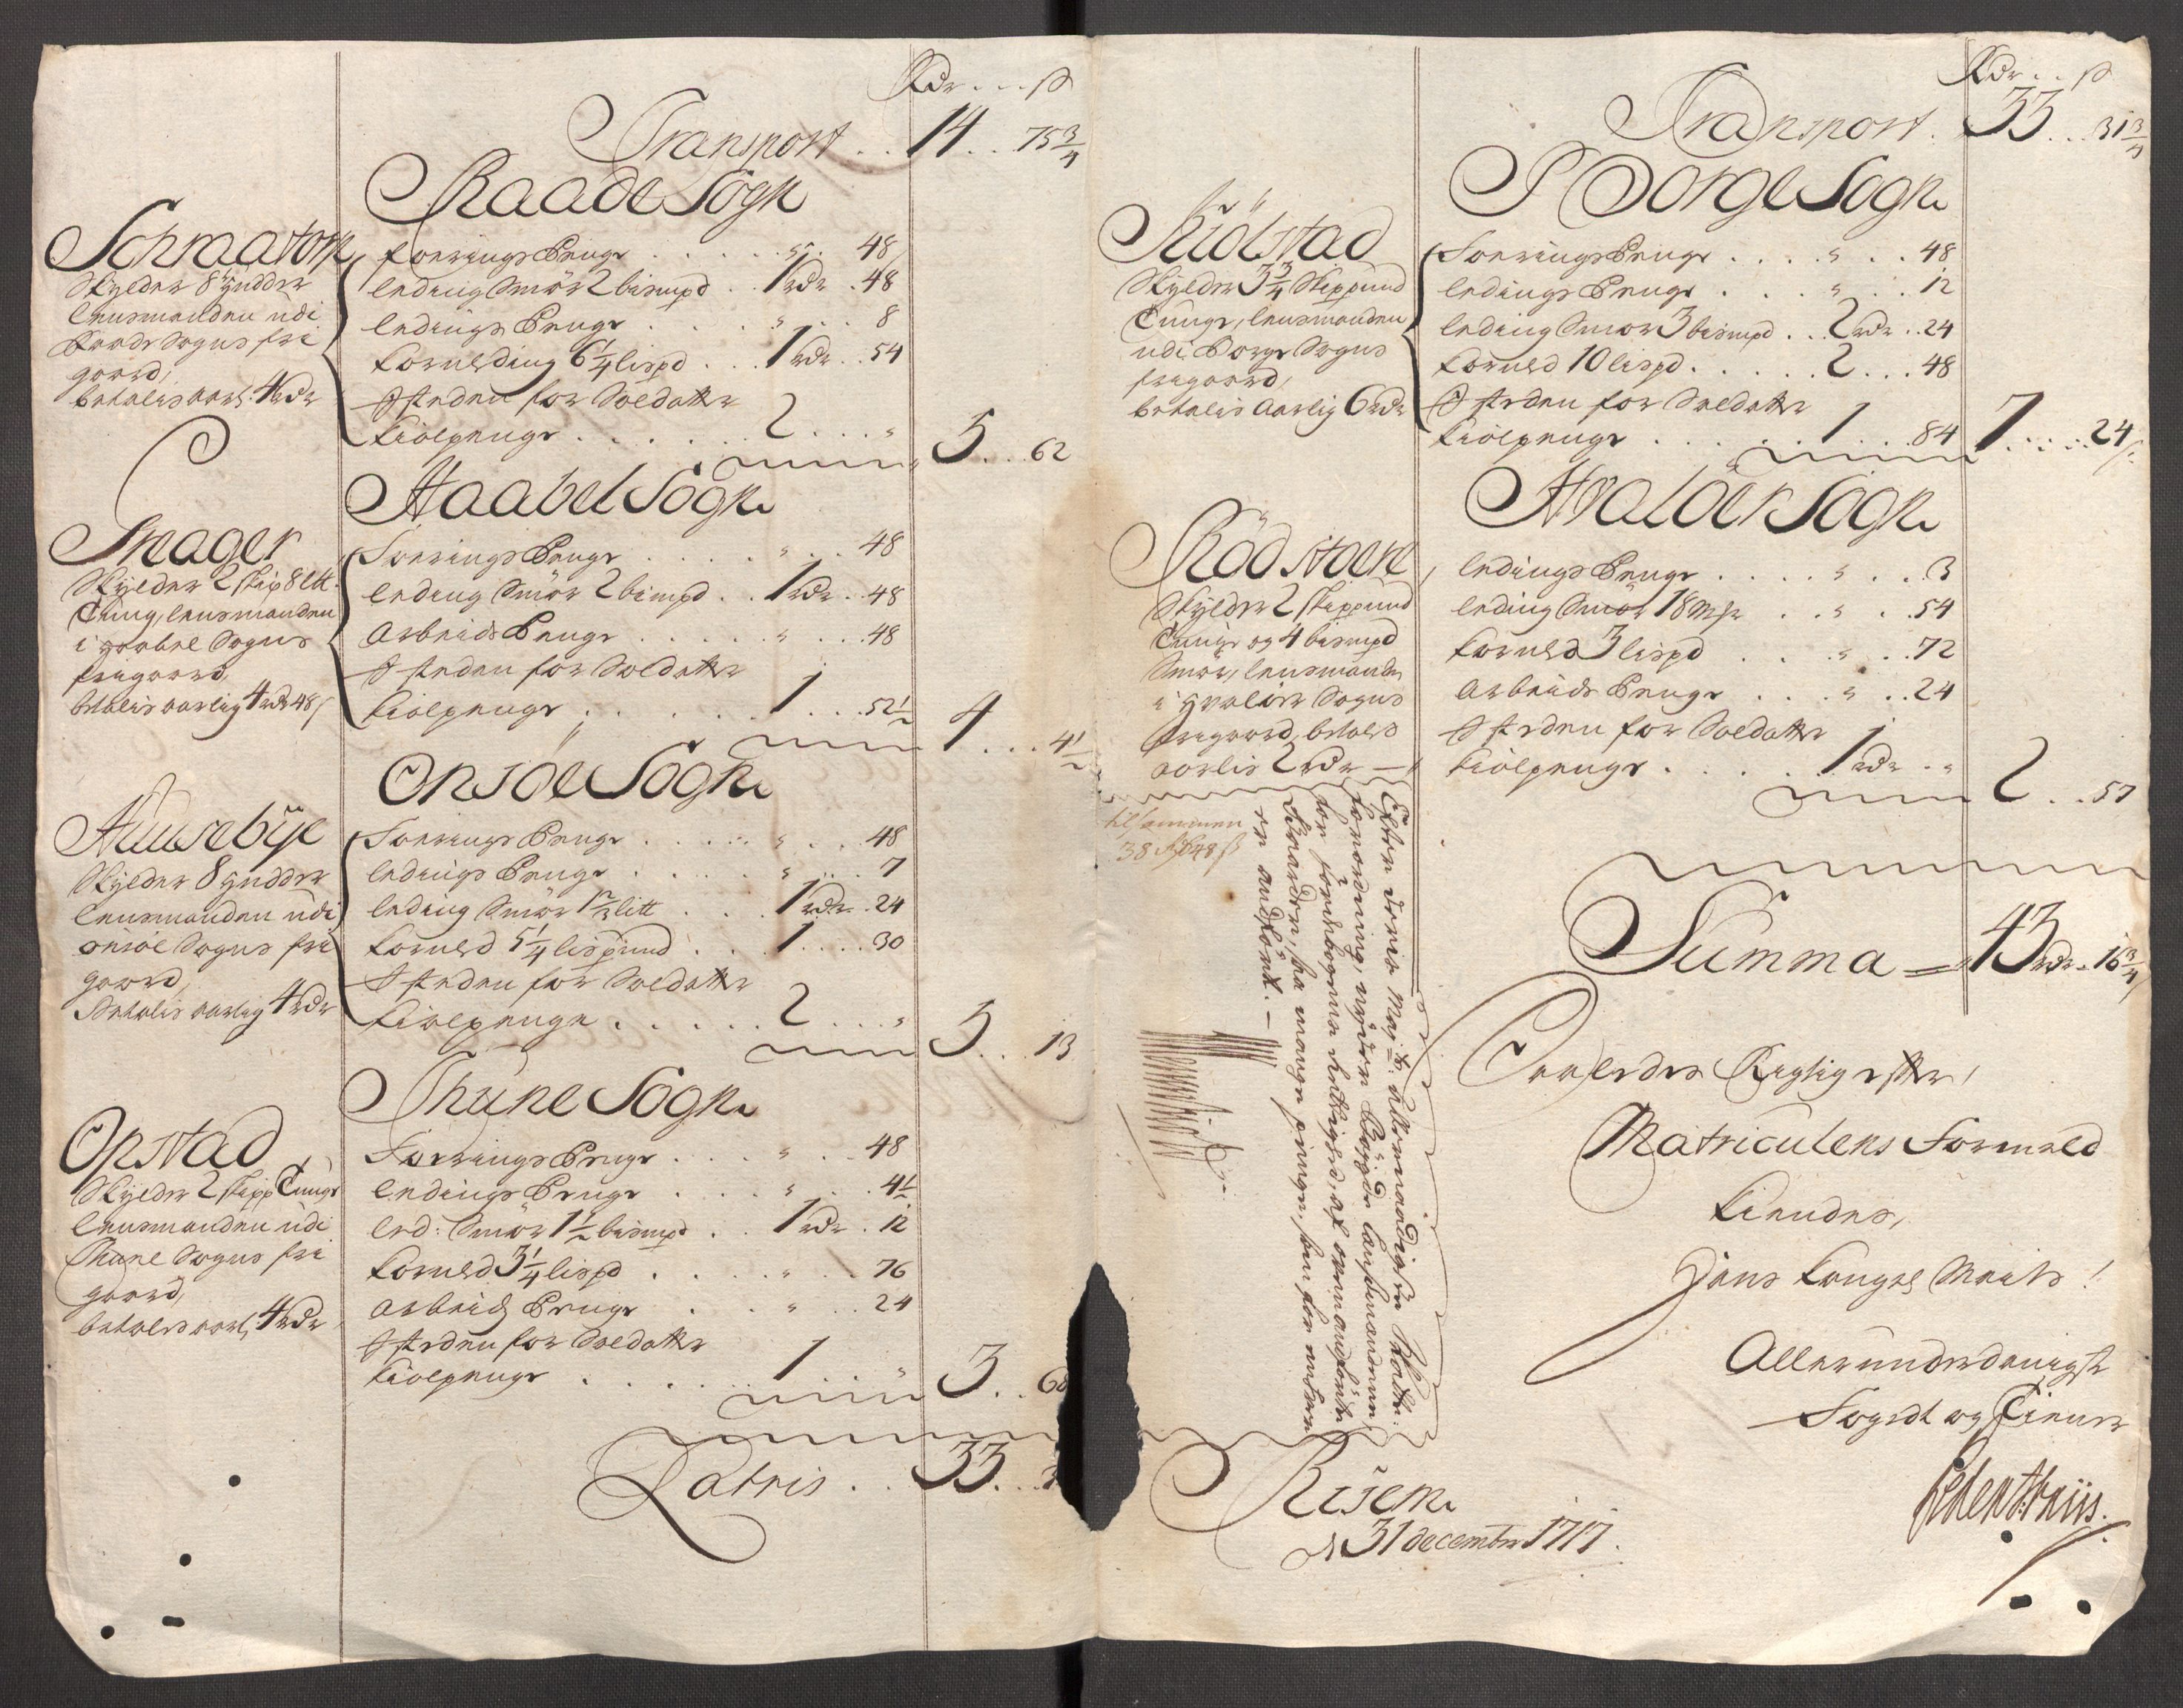 Rdr . . ß
Transport . . 14 . . 75 3/4
Raade Sogn
Schraatorp
Skylder 8 hudder
lensmanden udi
Raade Sogns fri
gaard,
betalis aarl: 4 Rdr
Foerings Penge . . . . 48
leding Smör 2 bismpd . . 1 rdr . 48
ledings Penge . . . . 8
Kornleding 6 1/4 lispd . . 1 rdr . . 54
I steden for Soldatter
kiolpenge . . . . 2 . . .
5 . . 62
Haabel Sogn
Sneager
Skylder 2 skip 8 ltt
Tung, lensmanden
i Haabel Sogns
frigaard,
betalis aarlig 4 rdr 48 ß
Foerings Penge . . . . 48
leding Smör 2 bimpd . . 1 rdr . . 48
Arbeids Penge . . . . 48
I steden for Soldatter
kiolpenge . . . . 1 . . . 52 1/2
4 . . . 4 1/2
Onsöe Sogn
Huusebÿe
Skylder 8 hudder
lensmanden udi
onsöe Sogns fri
gaard,
Betalis aarlig 4 rdr
Foerings Penge . . . . 48
ledings Penge . . . . 7
leding Smör 1 2/3 litt . . 1 rdr . 24
Kornled 5 1/4 lispund . . 1 . . . 30
I steden for Soldatter
kiolpenge . . . . 2 . . .
5 . . 13
Thune Sogn
Opstad
Skylder 2 skipp Tunge
lensmanden udi
Thune Sogns fri
gaard,
betales aarl, 4 rdr
Foerings Penge . . . . 48
ledings Penge . . . . 4 1/2
led: Smör 1 1/2 bismpd . . 1 rdr . 12
Kornled 3 1/4 lispd . . . . 76
Arbeids Penge . . . . 24
I steden for Soldatter
kiolpenge . . . . 1 . . .
3 . . 68
Latris . . 33 . .
Rdr . . ß
Transport . 33 . . 31 3/4
I Borge Sogn
Kiölstad
Skylder 3 3/4 Skippund
Tunge, lensmanden
udi Borge Sogns
frigaard,
betalis aarlig 6 rdr
Foerings Penge . . . . 48
ledings Penge . . . . 12
leding Smör 3 bismpd . . 2 rdr . . 24
Kornled 10 lispd . . . . 2 . . . 48
I steden for Soldatter
kiolpenge . . . . 1 . . 84
7 . . . 24
Hvalöer Sogn
Röd
Skylder 2 skippund
Tunge og 4 bismpd
Smör, lensmanden
i Hvalöer Sogns
frigaard, betales
aarlig 2 rdr
ledings Penge . . . . 3
leding Smör 18 mrk . . . . 54
Kornled 3 lispd . . . . 72
Arbeids Penge . . . . 24
I steden for Soldatter
kiolpenge . . . . 1 rdr . .
2 . . 57
tilsammen
38 Rd 48 ß
Efter deris May:ts allernaadigste Skatte:
forordning, nyder Bÿgde lensmændene
for foranbogene rettighed, af ovenanförte
Gaarder, saa mange penge, som for enhver
er andfört. —
Summa = 43 rdr . 16 3/4
Saaledes Rigtig efter
Matriculens Formeld
kiendes,
Hans Kongel Maits!
Allerunderdanigste
Fogedt og Tienere
Peder Thriis.
Risen
d 31 decembr 1717.